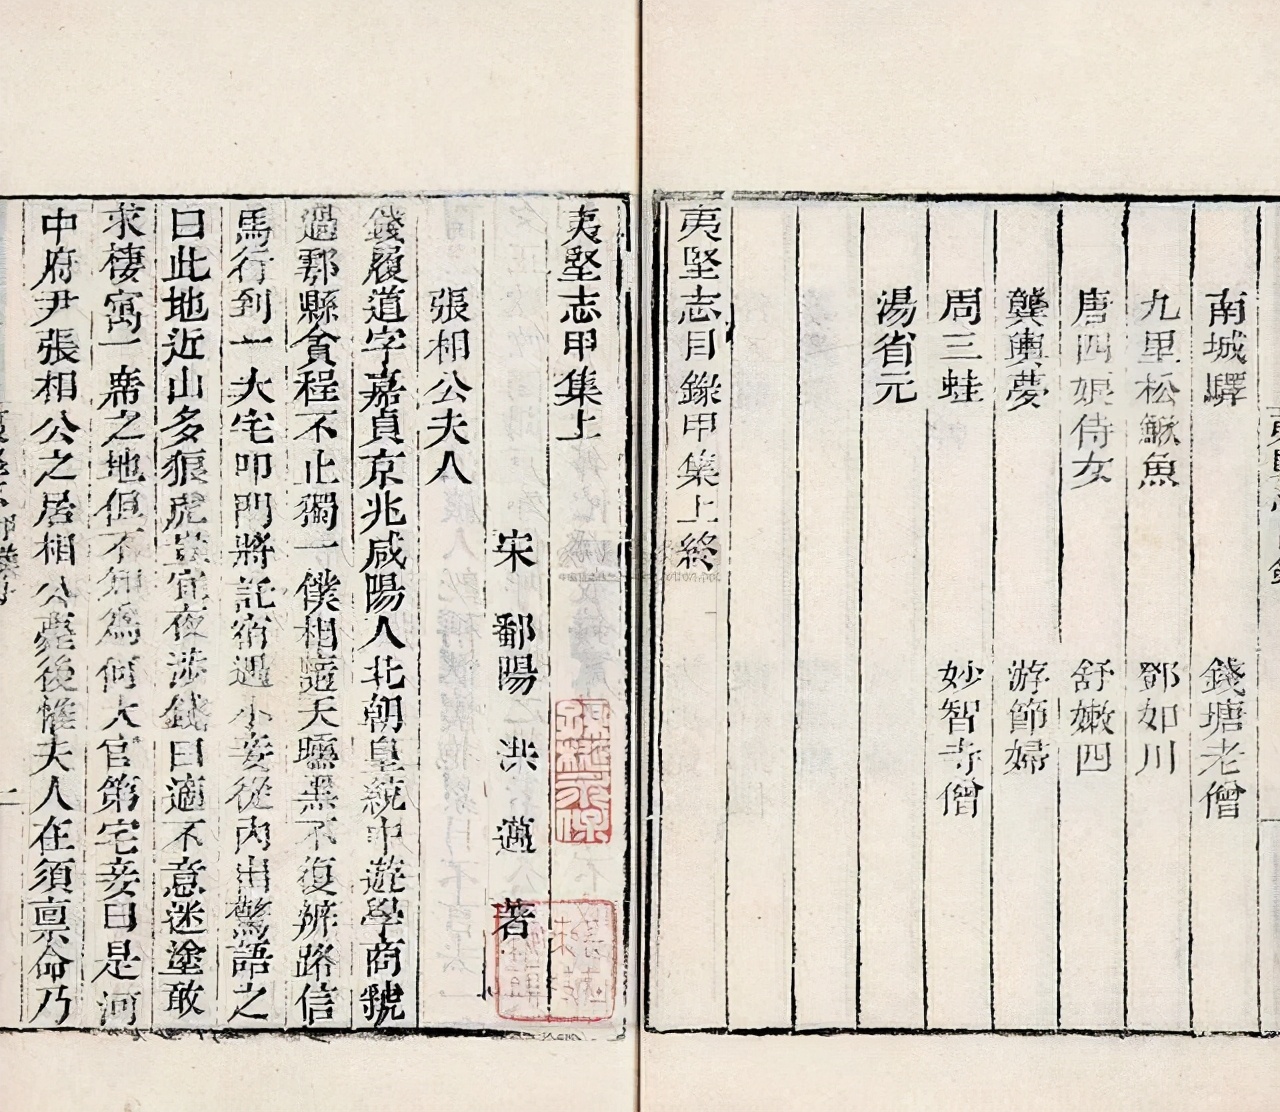 南城驛　錢塘老僧
九里松鰍魚　鄧如川
唐四娘侍女　舒嫩四
龔輿夢　游節婦
周三蛙　妙智寺僧
湯省元
夷堅志目錄甲集上終
夷堅志甲集上
宋　鄱陽　洪　邁　著
張相公夫人
錢履道字嘉貞京兆咸陽人北朝皇統中遊學商虢
過鄠縣貪程不止獨一僕相隨天曛黑不復辨路信
馬行到一大宅叩門將託宿遇小妾從內出驚語之
曰此地近山多狼虎豈宜夜涉錢曰適不意迷塗敢
求棲寓一席之地但不知為何大官第宅妾曰是河
中府尹張相公之居相公薨後惟夫人在須禀命乃